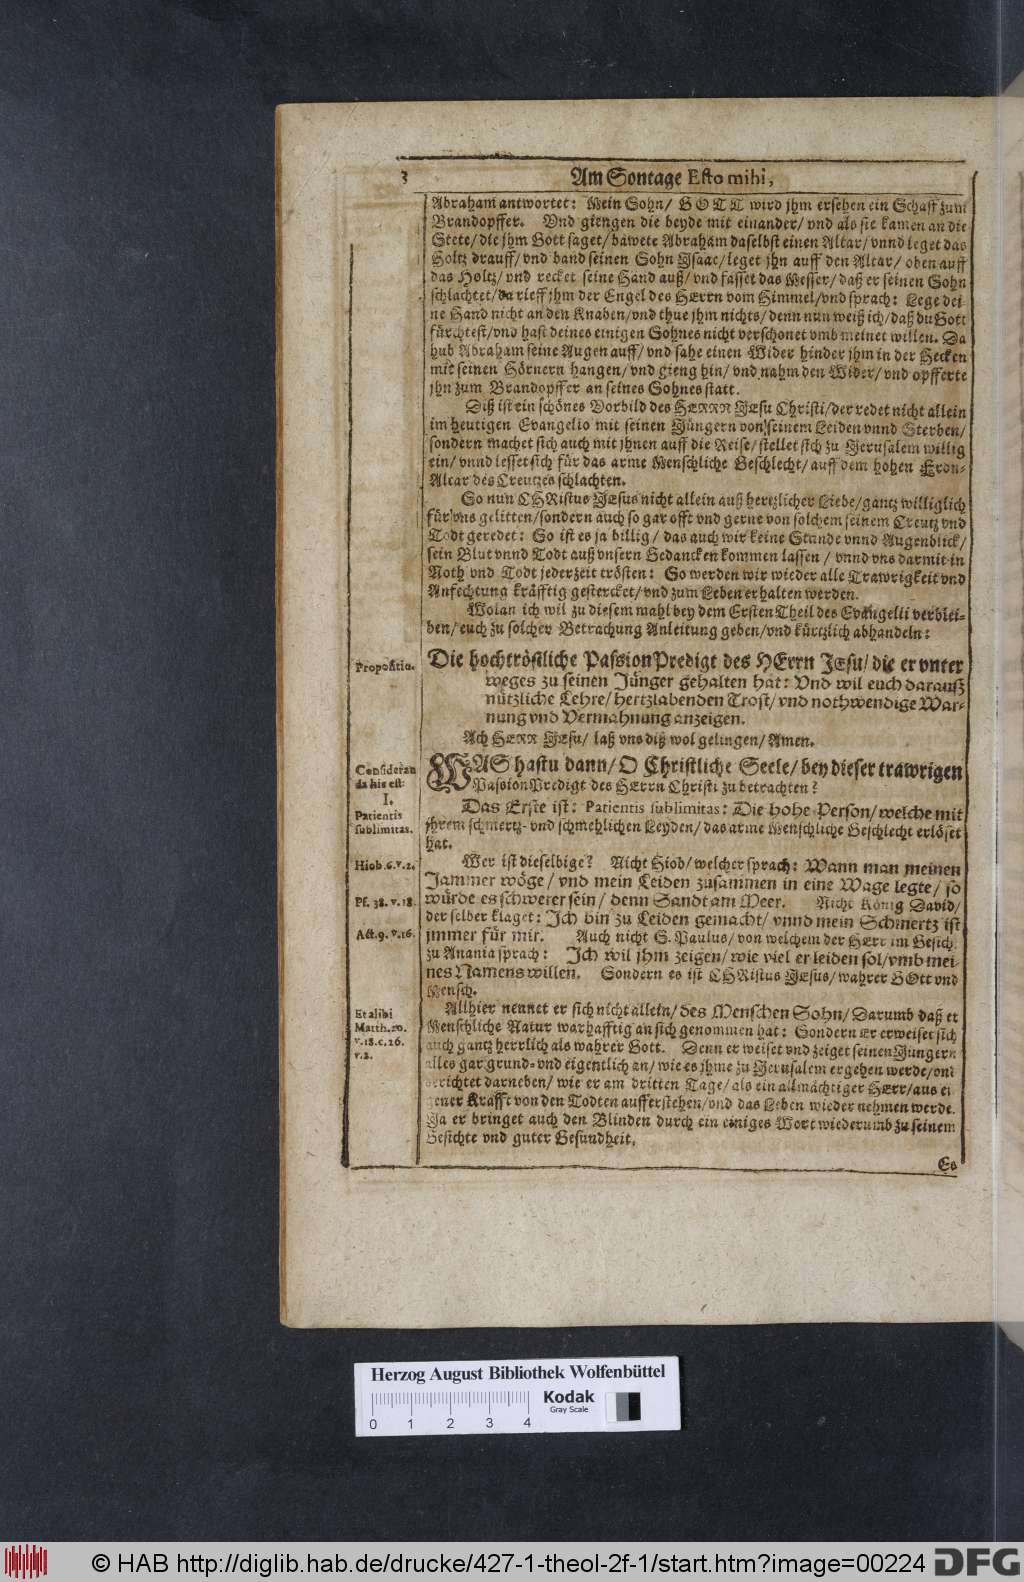 3
Am Sontage Esto mihi,
Abraham antwortet: Mein Sohn/ GOTT wird jhm ersehen ein Schaff zum
Brandopffer. Vnd giengen die beyde mit einander/ vnd als sie kamen an die
Stete/ die jhm Gott saget/ bawete Abraham daselbst einen Altar/ vnnd leget das
Holtz drauff/ vnd band seinen Sohn Isaac/ leget jhn auff den Altar/ oben auff
das Holtz/ vnd recket seine Hand auß/ vnd fasset das Messer/ daß er seinen Sohn
schlachtet/ da rieff jhm der Engel des HErrn vom Himmel/ vnd sprach: Lege dei-
ne Hand nicht an den Knaben/ vnd thue jhm nichts/ denn nun weiß ich/ daß du Gott
fürchtest/ vnd hast deines einigen Sohnes nicht verschonet vmb meinet willen. Da
hub Abraham seine Augen auff/ vnd sahe einen Wider hinder jhm in der Hecken
mit seinen Hörnern hangen/ vnd gieng hin/ vnd nahm den Wider/ vnd opfferte
jhn zum Brandopffer an seines Sohnes statt.
Diß ist ein schönes Vorbild des HERRN JEsu Christi/ der redet nicht allein
im heutigen Evangelio mit seinen Jüngern von seinem Leiden vnnd Sterben/
sondern machet sich auch mit jhnen auff die Reise/ stellet sich zu Jerusalem willig
ein/ vnnd lesset sich für das arme Menschliche Geschlecht/ auff dem hohen Fron-
Altar des Creutzes schlachten.
So nun CHRistus JEsus nicht allein auß hertzlicher Liebe/ gantz williglich
für vns gelitten/ sondern auch so gar offt vnd gerne von solchem seinem Creutz vnd
Todt geredet: So ist es ja billig/ das auch wir keine Stunde vnnd Augenblick/
sein Blut vnnd Todt auß vnsern Gedancken kommen lassen/ vnnd vns darmit in
Noth vnd Todt jederzeit trösten: So werden wir wieder alle Trawrigkeit vnd
Anfechtung kräfftig gestercket/ vnd zum Leben erhalten werden.
Wolan ich wil zu diesem mahl bey dem Ersten Theil des Evangelii verblei-
ben/ euch zu solcher Betrachung Anleitung geben/ vnd kürtzlich abhandeln:
Propositio.
Die hochtröstliche PassionPredigt des HErrn JEsu/ die er vnter
weges zu seinen Jünger gehalten hat: Vnd wil euch darauß
nützliche Lehre/ hertzlabenden Trost/ vnd nothwendige War-
nung vnd Vermahnung anzeigen.
Ach HERR JEsu/ laß vns diß wol gelingen/ Amen.
Consideran
da hic est:
I.
Patientis
sublimitas.
WAS hastu dann/ O Christliche Seele/ bey dieser trawrigen
PassionPredigt des HErrn Christi zu betrachten?
Das Erste ist: Patientis sublimitas: Die hohe Person/ welche mit
jhrem schmertz- vnd schmehlichen Leyden/ das arme Menschliche Geschlecht erlöset
hat.
Hiob. 6. v. 2.
Wer ist dieselbige? Nicht Hiob/ welcher sprach: Wann man meinen
Jammer wöge/ vnd mein Leiden zusammen in eine Wage legte/ so
Ps. 38. v. 18.
würde es schwerer sein/ denn Sandt am Meer. Nicht König David/
der selber klaget: Ich bin zu Leiden gemacht/ vnnd mein Schmertz ist
Act. 9. v. 16.
jmmer für mir. Auch nicht S. Paulus/ von welchem der HErr im Gesich
zu Anania sprach: Ich wil jhm zeigen/ wie viel er leiden sol/ vmb mei-
nes Namens willen. Sondern es ist CHRistus JEsus/ wahrer GOtt vnd
Mensch.
Et alibi
Matth. 20.
v. 18. c. 26.
v. 2.
Allhier nennet er sich nicht allein/ des Menschen Sohn/ Darumb daß er
Menschliche Natur warhafftig an sich genommen hat: Sondern Er erweiset sich
auch gantz herrlich als wahrer Gott. Denn er weiset vnd zeiget seinen Jüngern
alles gar grund- vnd eigentlich an/ wie es jhme zu Jerusalem ergehen werde/ vnd
berichtet darneben/ wie er am dritten Tage/ als ein allmächtiger HErr/ aus ei
gener Krafft von den Todten aufferstehen/ vnd das Leben wieder nehmen werde.
Ja er bringet auch den Blinden durch ein einiges Wort wiederumb zu seinem
Gesichte vnd guter Gesundheit.
Es
Herzog August Bibliothek Wolfenbüttel
Kodak
Gray Scale
0 1 2 3 4
© HAB http://diglib.hab.de/drucke/427-1-theol-2f-1/start.htm?image=00224
DFG